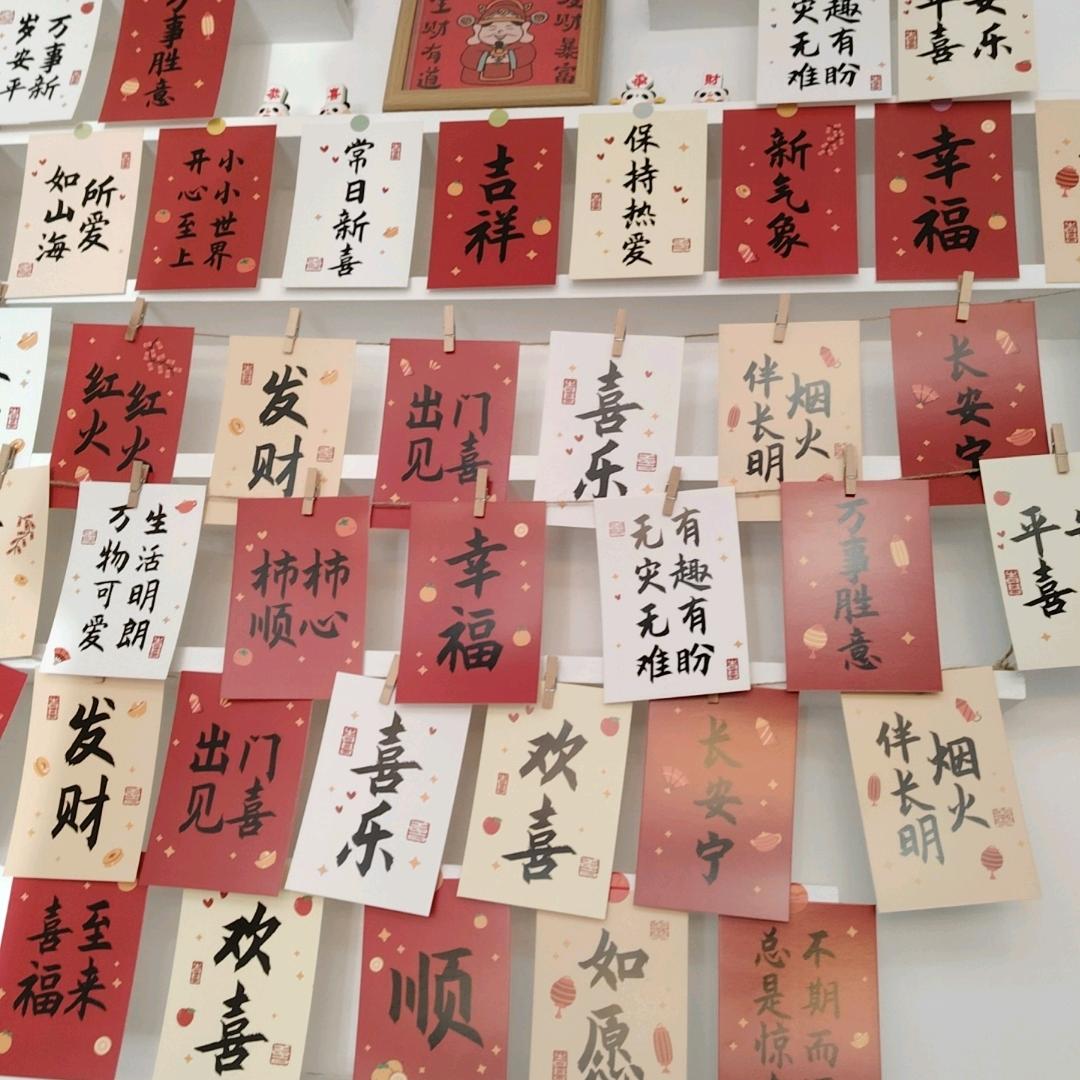 万事新
岁安平
万事胜意
生财有道
发财暴富
恭
喜
發
財
趣有
灾无
难有盼
平安
喜乐
所爱
如山海
小小世界
开心至上
常日新喜
吉祥
保持热爱
新气象
幸福
红红
火火
发财
出门
见喜
喜乐
烟火
伴长明
长安宁
生活明朗
万物可爱
柿柿
顺心
幸福
有趣有盼
无灾无难
万事胜意
平
喜
发财
出门
见喜
喜乐
欢喜
长安宁
烟火
伴长明
至来
喜福
欢喜
顺
如愿
不期而
总是惊